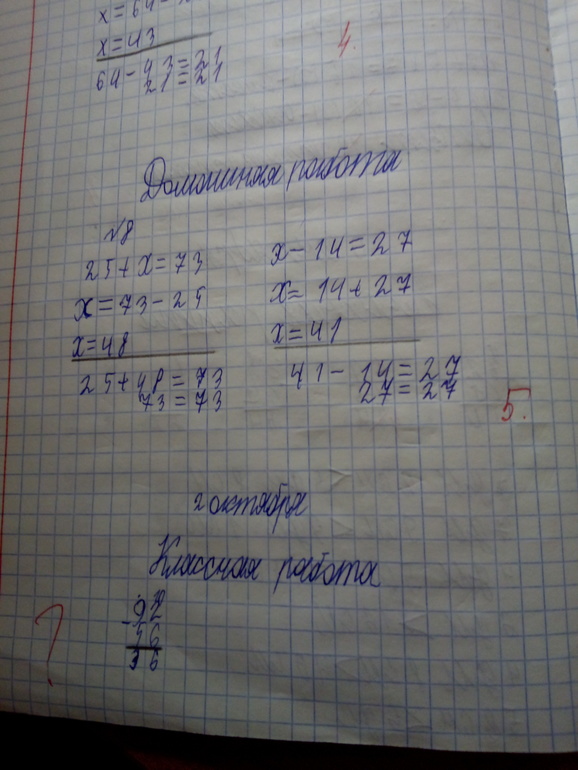 x=64-
x=43
64-43=21
21=21
4.
Домашняя работа
№8
25+x=73
x=73-25
x=48
25+48=73
73=73
x-14=27
x=14+27
x=41
41-14=27
27=27
5.
2 октября
Классная работа
-92
56
36
?